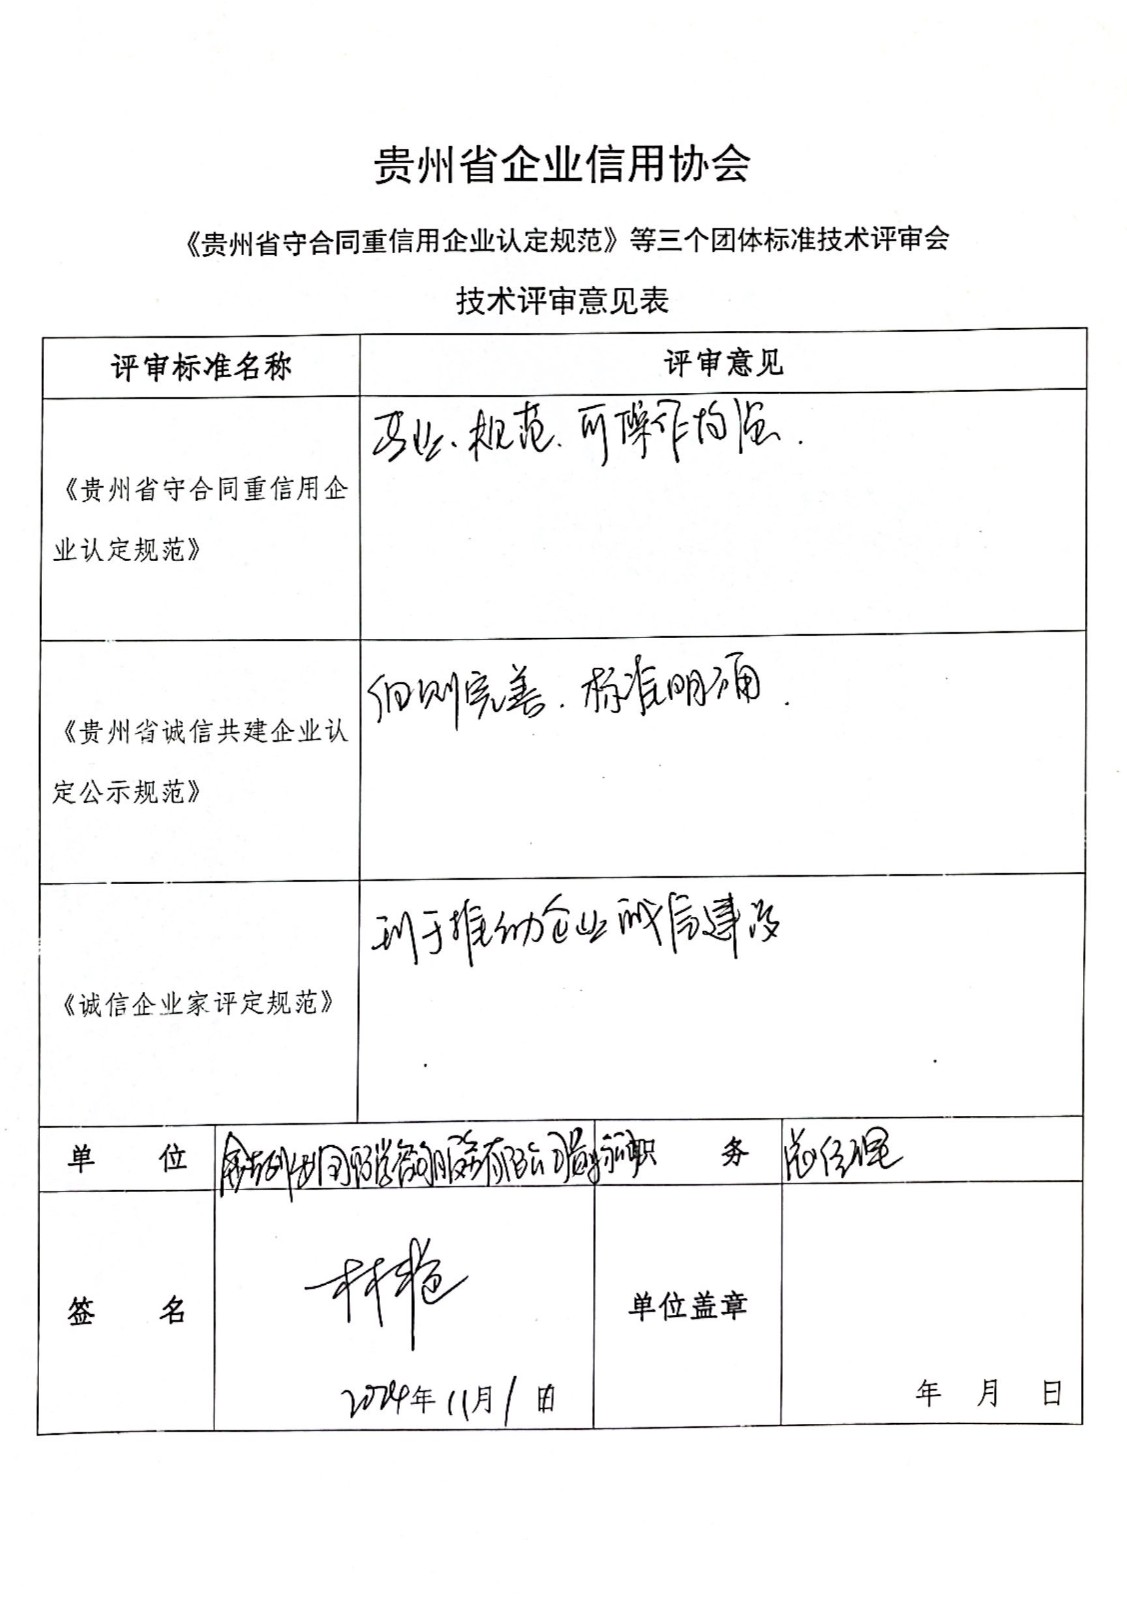 贵州省企业信用协会
《贵州省守合同重信用企业认定规范》等三个团体标准技术评审会
技术评审意见表
评审标准名称 评审意见
《贵州省守合同重信用企
业认定规范》
专业、规范、可操作均强.
《贵州省诚信共建企业认
定公示规范》
细则完善、标准明确.
《诚信企业家评定规范》
利于推动企业诚信建设
单 位 有限公司 职 务 总经理
签 名 林
2024年11月1日
单位盖章
年 月 日